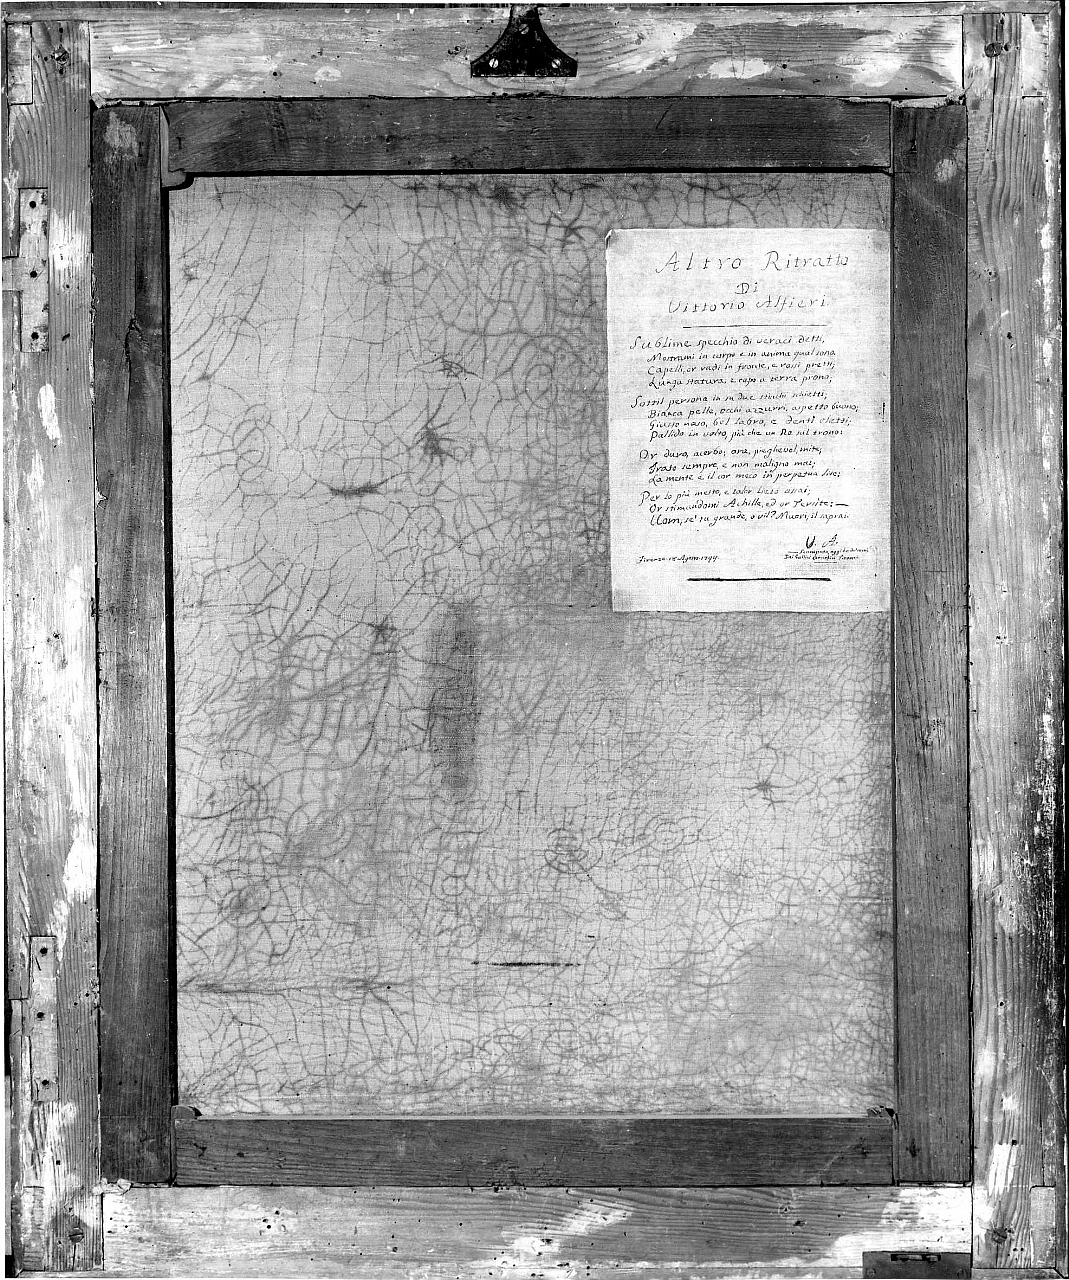 Altro Ritratto
Di
Vittorio Alfieri
Sublime specchio di veraci detti,
Mostrami in corpo e in anima qual sono
Capelli, or radi in fronte, e rossi pretti;
Lunga statura, e capo a terra prono;
Sottil persona in su due stinchi schietti;
Bianca pelle, occhi azzurri, aspetto buono;
Giusto naso, bel labro, e denti eletti;
Pallido in volto, più che un Re sul trono:
Or duro, acerbo; ora, pieghevol, mite;
Irato sempre, e non maligno mai;
La mente e il cor meco in perpetua lite:
Per lo più mesto, e talor lieto assai;
Or stimandomi Achille, ed or Tersite:—
Uom, se' tu grande, o vil? Muori, il saprai.
V. A.
Firenze